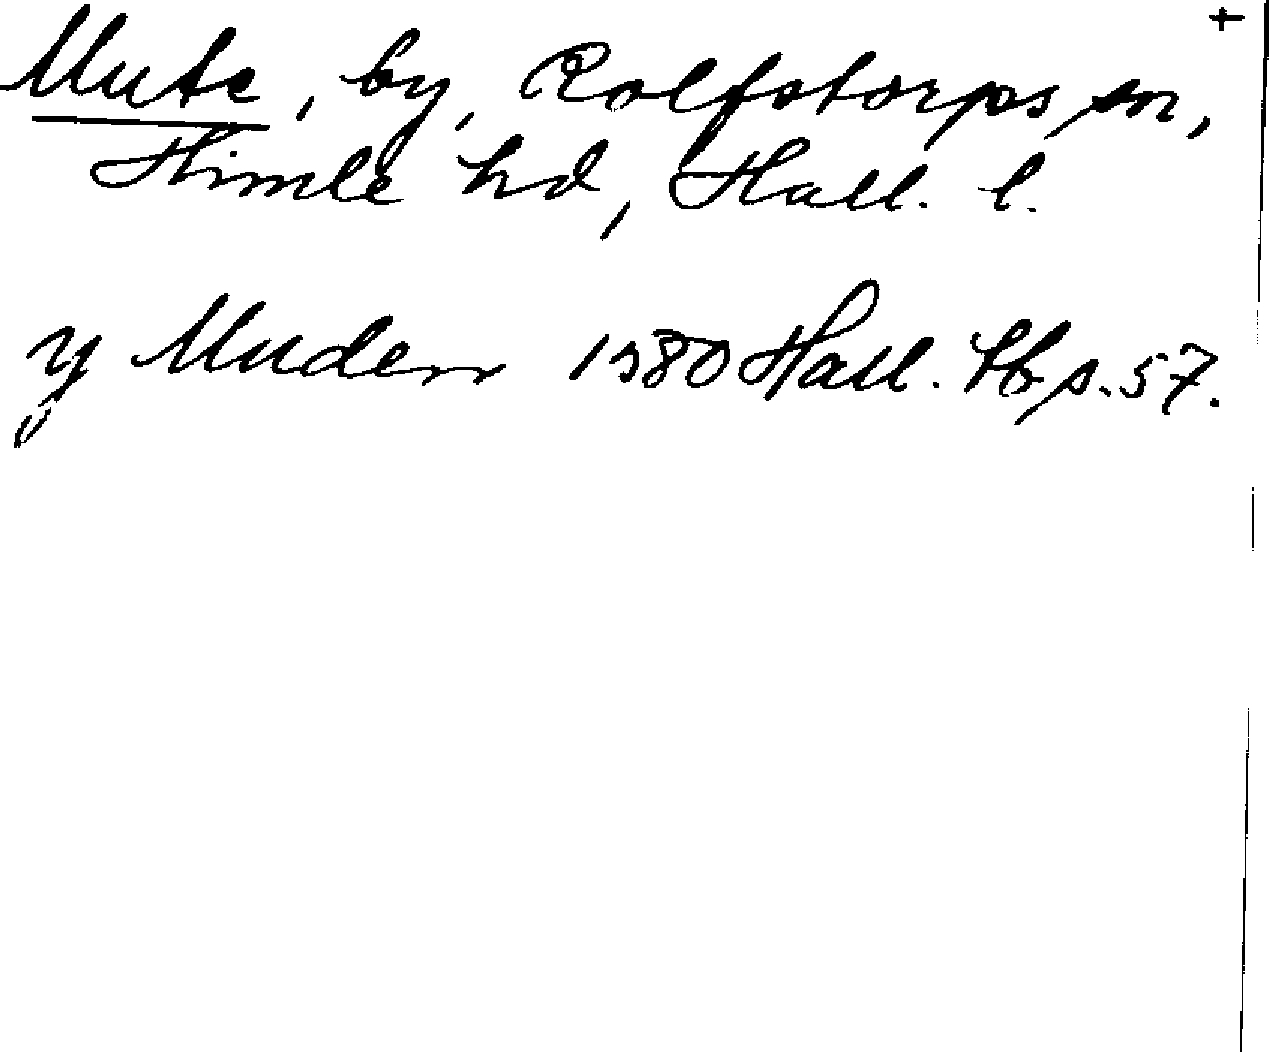 +
Mute, by, Rolfstorps sn,
Himle hd, Hall. l.
y Muden 1580 Hall. Hb s. 57.